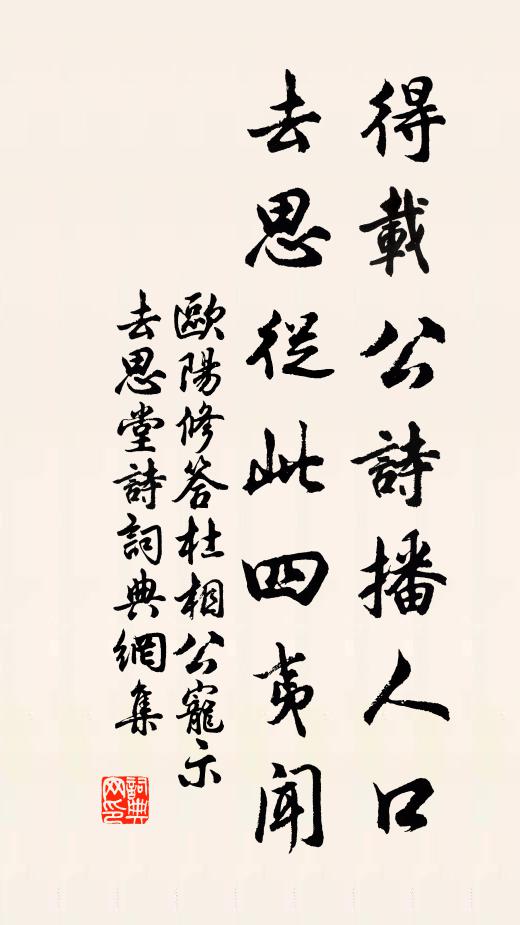 得載公詩播人口
去思從此四夷聞
歐陽修答杜相公寵示
去思堂詩詞典網集
詞典
网印